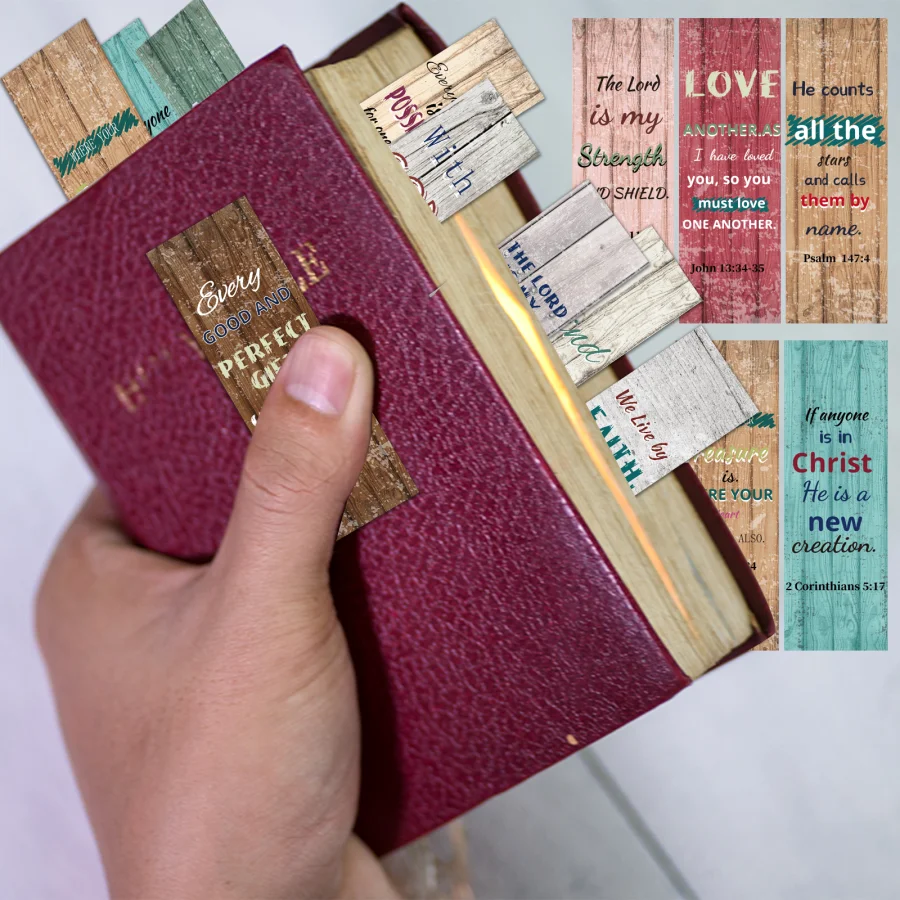 WHERE YOUR
yone
Every
is
POSS
for one
With
THE LORD
MY
nd
We Live by
FAITH.
Every
GOOD AND
PERFECT
The Lord
is my
Strength
ND SHIELD.
LOVE
ANOTHER.AS
I have loved
you, so you
must love
ONE ANOTHER.
John 13:34-35
He counts
all the
stars
and calls
them by
name.
Psalm 147:4
easure
is.
RE YOUR
eart
ALSO.
If anyone
is in
Christ
He is a
new
creation.
2 Corinthians 5:17